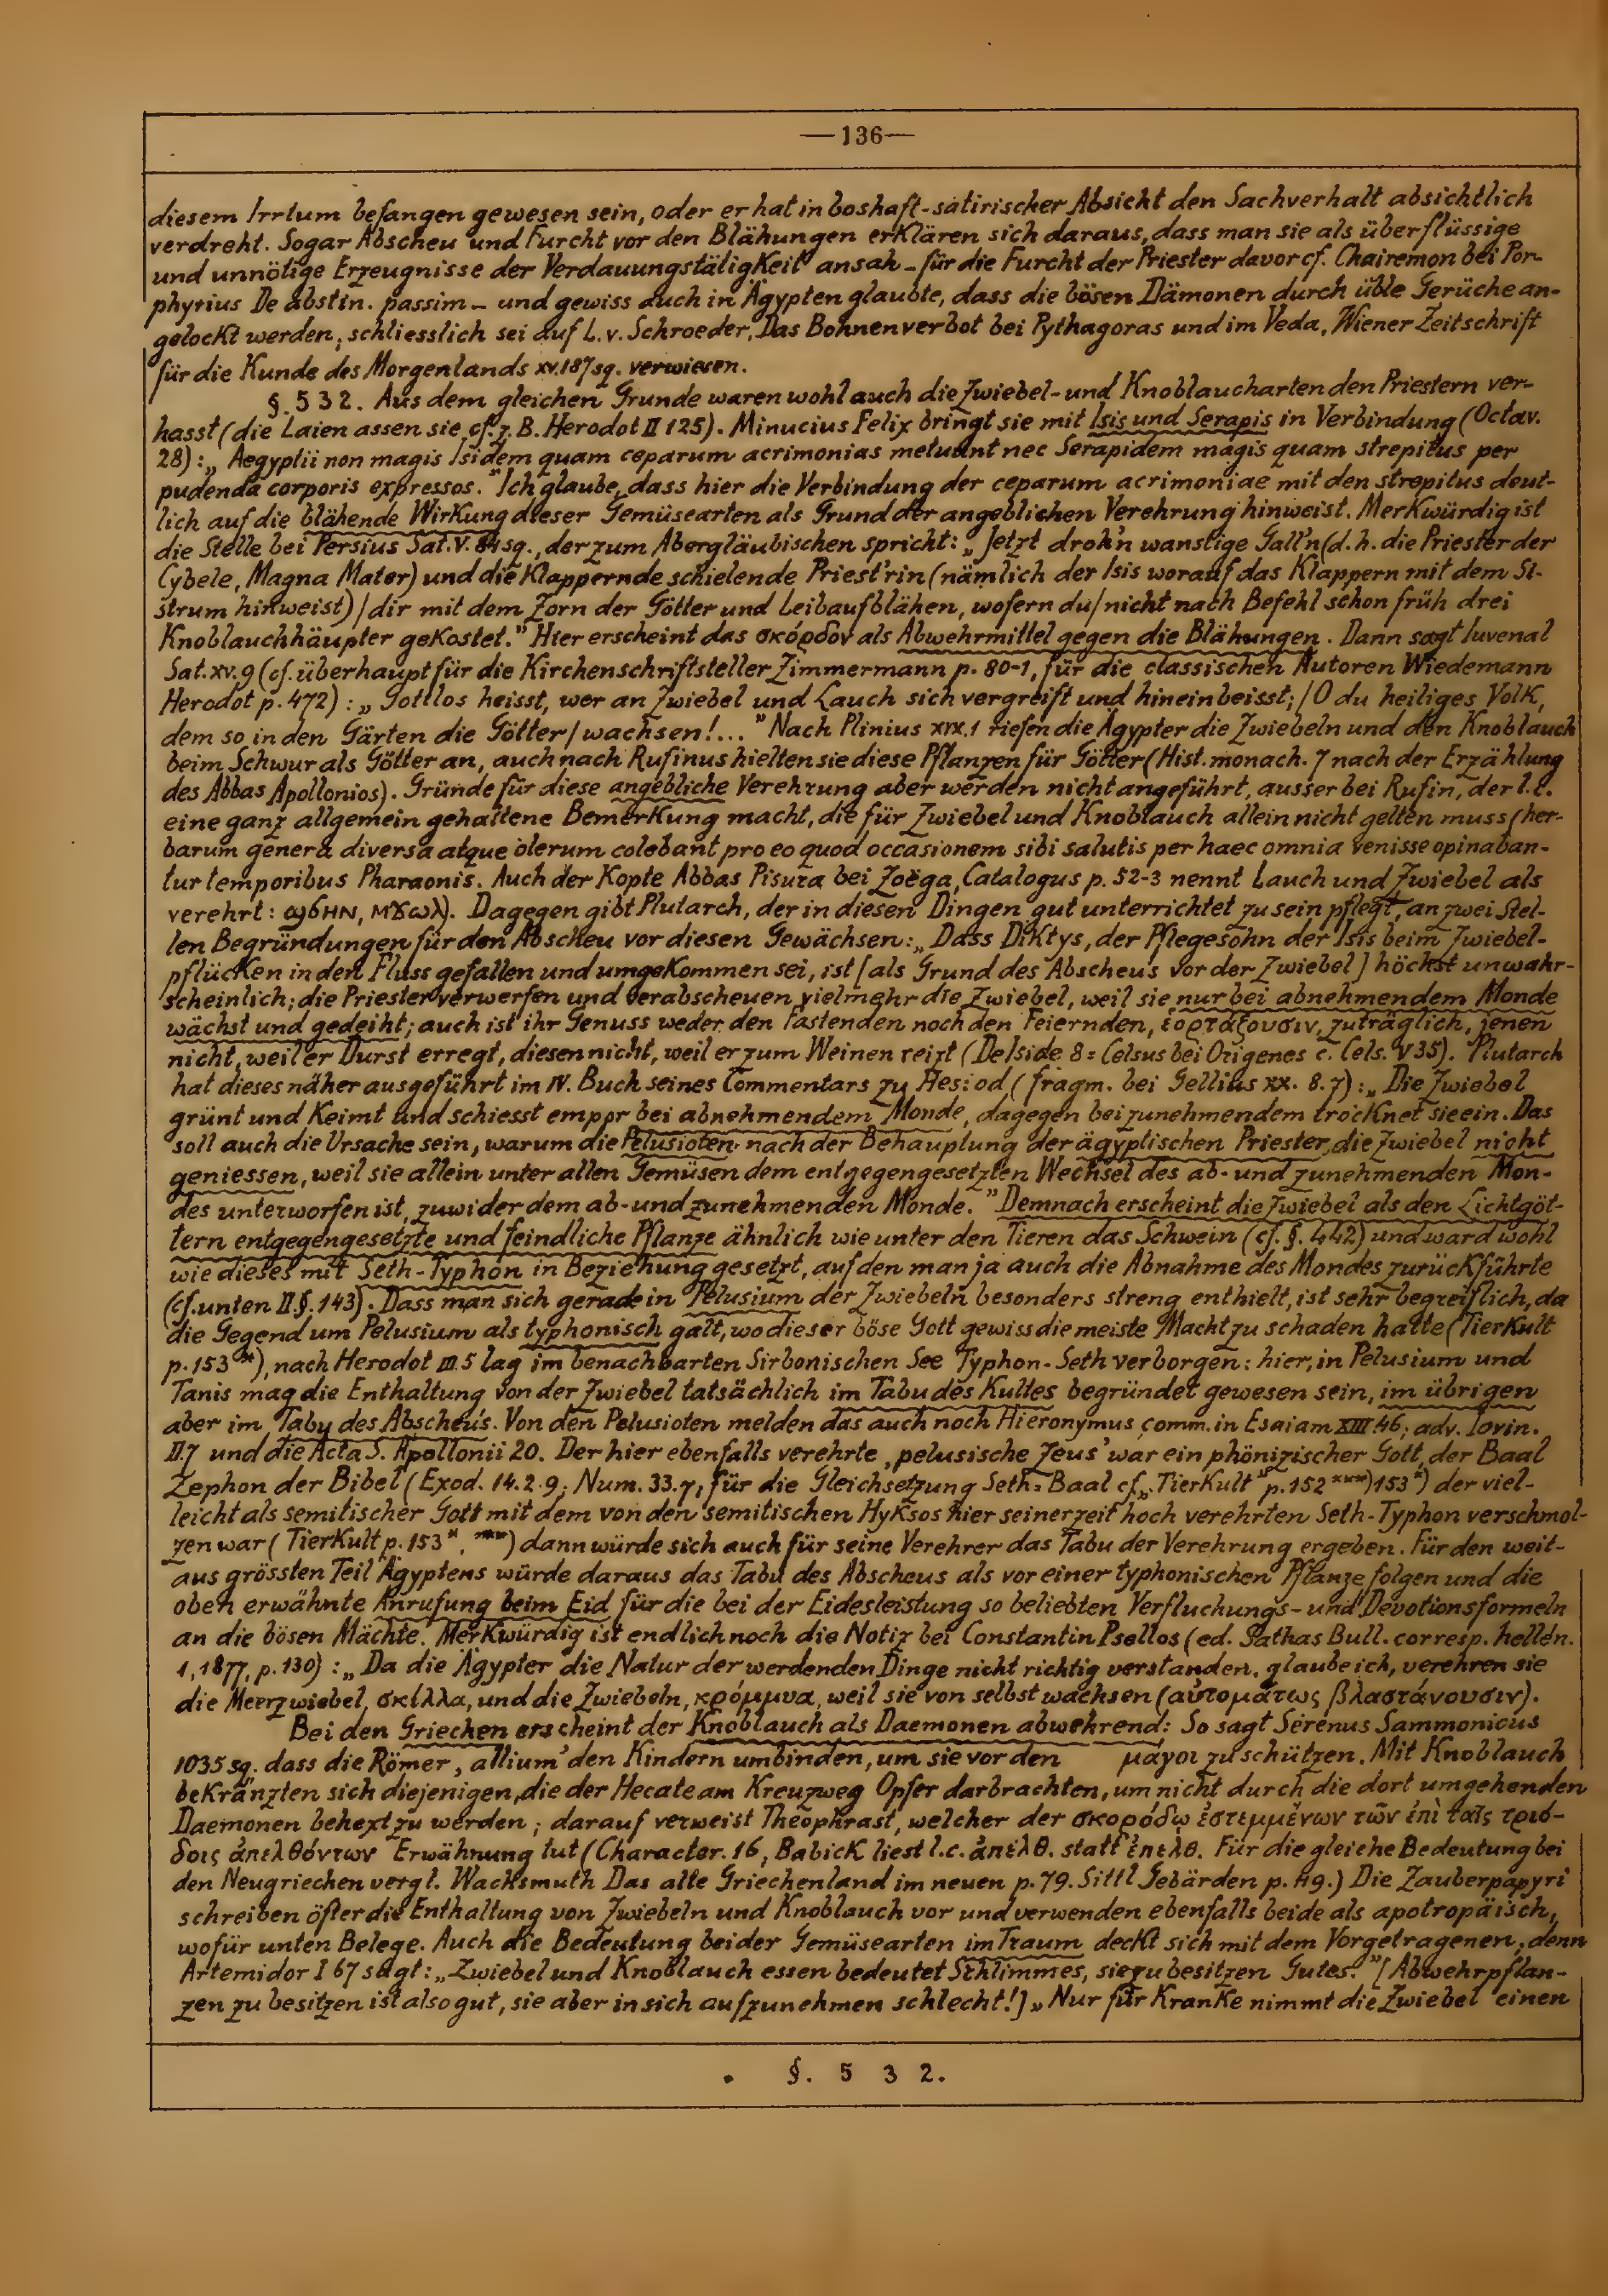 —136—
diesem Irrtum befangen gewesen sein, oder er hat in boshaft-satirischer Absicht den Sachverhalt absichtlich
verdreht. Sogar Abscheu und Furcht vor den Blähungen erklären sich daraus, dass man sie als überflüssige
und unnötige Erzeugnisse der Verdauungstätigkeit ansah – für die Furcht der Priester davor cf. Chairemon bei Por-
phyrius De abstin. passim – und gewiss auch in Ägypten glaubte, dass die bösen Dämonen durch üble Gerüche an-
gelockt werden; schliesslich sei auf L. v. Schroeder, Das Bohnenverbot bei Pythagoras und im Veda, Wiener Zeitschrift
für die Kunde des Morgenlands XV. 187 sq. verwiesen.
§. 532. Aus dem gleichen Grunde waren wohl auch die Zwiebel- und Knoblaucharten den Priestern ver-
hasst (die Laien assen sie cf. z. B. Herodot II 125). Minucius Felix bringt sie mit Isis und Serapis in Verbindung (Octav.
28): „Aegyptii non magis Isidem quam ceparum acrimonias metuunt nec Serapidem magis quam strepitus per
pudenda corporis expressos." Ich glaube, dass hier die Verbindung der ceparum acrimoniae mit den strepitus deut-
lich auf die blähende Wirkung dieser Gemüsearten als Grund der angeblichen Verehrung hinweist. Merkwürdig ist
die Stelle bei Persius Sat. V. 84 sq., der zum Abergläubischen spricht: „Jetzt droh'n wanstige Gall'n (d. h. die Priester der
Cybele, Magna Mater) und die klappernde schielende Priest'rin (nämlich der Isis worauf das Klappern mit dem Si-
strum hinweist) / dir mit dem Zorn der Götter und Leibaufblähen, wofern du / nicht nach Befehl schon früh drei
Knoblauchhäupter gekostet." Hier erscheint das σκόρδον als Abwehrmittel gegen die Blähungen. Dann sagt Iuvenal
Sat. XV. 9 (cf. überhaupt für die Kirchenschriftsteller Zimmermann p. 80-1, für die classischen Autoren Wiedemann
Herodot p. 472): „Gottlos heisst, wer an Zwiebel und Lauch sich vergreift und hineinbeisst; / O du heiliges Volk,
dem so in den Gärten die Götter / wachsen!..." Nach Plinius XIX. 1 riefen die Ägypter die Zwiebeln und den Knoblauch
beim Schwur als Götter an, auch nach Rufinus hielten sie diese Pflanzen für Götter (Hist. monach. 7 nach der Erzählung
des Abbas Apollonios). Gründe für diese angebliche Verehrung aber werden nicht angeführt, ausser bei Rufin, der l. c.
eine ganz allgemein gehaltene Bemerkung macht, die für Zwiebel und Knoblauch allein nicht gelten muss (her-
barum genera diversa atque olerum colebant pro eo quod occasionem sibi salutis per haec omnia venisse opinaban-
tur temporibus Pharaonis. Auch der Kopte Abbas Pisura bei Zoëga, Catalogus p. 52-3 nennt Lauch und Zwiebel als
verehrt: ϣϭⲏⲛ, ). Dagegen gibt Plutarch, der in diesen Dingen gut unterrichtet zu sein pflegt, an zwei Stel-
len Begründungen für den Abscheu vor diesen Gewächsen: „Dass Diktys, der Pflegesohn der Isis beim Zwiebel-
pflücken in den Fluss gefallen und umgekommen sei, ist [als Grund des Abscheus vor der Zwiebel] höchst unwahr-
scheinlich; die Priester verwerfen und verabscheuen vielmehr die Zwiebel, weil sie nur bei abnehmendem Monde
wächst und gedeiht; auch ist ihr Genuss weder den Fastenden noch den Feiernden, ἑορτάζουσιν, zuträglich, jenen
nicht, weil er Durst erregt, diesen nicht, weil er zum Weinen reizt (De Iside 8 = Celsus bei Origenes c. Cels. V 35). Plutarch
hat dieses näher ausgeführt im IV. Buch seines Commentars zu Hesiod (fragm. bei Gellius XX. 8. 7): „Die Zwiebel
grünt und keimt und schiesst empor bei abnehmendem Monde, dagegen bei zunehmendem trocknet sie ein. Das
soll auch die Ursache sein, warum die Pelusioten nach der Behauptung der ägyptischen Priester, die Zwiebel nicht
geniessen, weil sie allein unter allen Gemüsen dem entgegengesetzten Wechsel des ab- und zunehmenden Mon-
des unterworfen ist, zuwider dem ab- und zunehmenden Monde." Demnach erscheint die Zwiebel als den Lichtgöt-
tern entgegengesetzte und feindliche Pflanze ähnlich wie unter den Tieren das Schwein (cf. §. 442) und ward wohl
wie dieses mit Seth-Typhon in Beziehung gesetzt, auf den man ja auch die Abnahme des Mondes zurückführte
(cf. unten II. §. 143). Dass man sich gerade in Pelusium der Zwiebeln besonders streng enthielt, ist sehr begreiflich, da
die Gegend um Pelusium als typhonisch galt, wo dieser böse Gott gewiss die meiste Macht zu schaden hatte (Tierkult
p. 153*), nach Herodot III. 5 lag im benachbarten Sirbonischen See Typhon-Seth verborgen: hier, in Pelusium und
Tanis mag die Enthaltung von der Zwiebel tatsächlich im Tabu des Kultes begründet gewesen sein, im übrigen
aber im Tabu des Abscheus. Von den Pelusioten melden das auch noch Hieronymus comm. in Esaiam XIII. 46; adv. Iovin.
II. 7 und die Acta S. Apollonii 20. Der hier ebenfalls verehrte ‚pelusische Zeus' war ein phönizischer Gott, der Baal
Zephon der Bibel (Exod. 14. 2. 9; Num. 33. 7, für die Gleichsetzung Seth = Baal cf. „Tierkult" p. 152***) 153*) der viel-
leicht als semitischer Gott mit dem von den semitischen Hyksos hier seinerzeit hoch verehrten Seth-Typhon verschmol-
zen war (Tierkult p. 153*, ***) dann würde sich auch für seine Verehrer das Tabu der Verehrung ergeben. Für den weit-
aus grössten Teil Ägyptens würde daraus das Tabu des Abscheus als vor einer typhonischen Pflanze folgen und die
oben erwähnte Anrufung beim Eid für die bei der Eidesleistung so beliebten Verfluchungs- und Devotionsformeln
an die bösen Mächte. Merkwürdig ist endlich noch die Notiz bei Constantin Psellos (ed. Sathas Bull. corresp. hellén.
1, 1877, p. 130): „Da die Ägypter die Natur der werdenden Dinge nicht richtig verstanden, glaube ich, verehren sie
die Meerzwiebel, σκίλλα, und die Zwiebeln, κρόμμυα, weil sie von selbst wachsen (αὐτομάτως βλαστάνουσιν).
Bei den Griechen erscheint der Knoblauch als Daemonen abwehrend: So sagt Serenus Sammonicus
1035 sq. dass die Römer ‚allium' den Kindern umbinden, um sie vor den μάγοι zu schützen. Mit Knoblauch
bekränzten sich diejenigen, die der Hecate am Kreuzweg Opfer darbrachten, um nicht durch die dort umgehenden
Daemonen behext zu werden; darauf verweist Theophrast, welcher der σκορόδῳ ἐστεμμένων τῶν ἐπὶ ταῖς τριό-
δοις ἀπελθόντων Erwähnung tut (Character. 16, Babick liest l. c. ἀπελθ. statt ἐπελθ. Für die gleiche Bedeutung bei
den Neugriechen vergl. Wachsmuth Das alte Griechenland im neuen p. 79. Sittl Gebärden p. 119.) Die Zauberpapyri
schreiben öfter die Enthaltung von Zwiebeln und Knoblauch vor und verwenden ebenfalls beide als apotropäisch,
wofür unten Belege. Auch die Bedeutung beider Gemüsearten im Traum deckt sich mit dem Vorgetragenen, denn
Artemidor I 67 sagt: „Zwiebel und Knoblauch essen bedeutet Schlimmes, sie zu besitzen Gutes." [Abwehrpflan-
zen zu besitzen ist also gut, sie aber in sich aufzunehmen schlecht!] „Nur für Kranke nimmt die Zwiebel einen
§. 532.